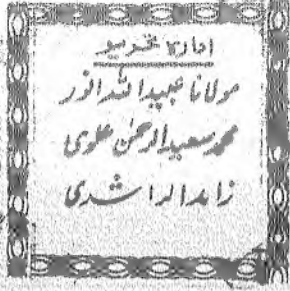 ادارہ تحریر
مولانا عبیداللہ انور
محمد سعید الرحمٰن علوی
زاہد الراشدی